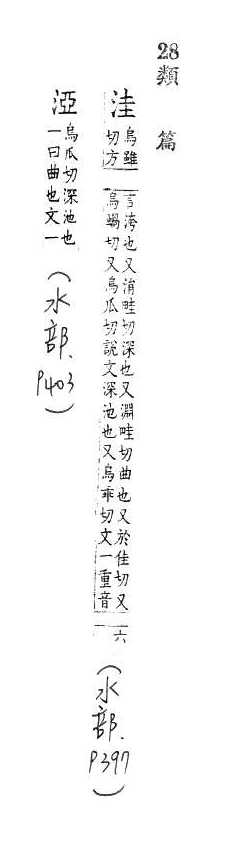 28 類篇
洼 烏雖
切方
言洿也又消畦切深也又淵畦切曲也又於佳切又
烏蝸切又烏瓜切說文深池也又烏乖切文一重音
六
(水部.P397)
烏瓜切深池也
一曰曲也文一
(水部.P403)